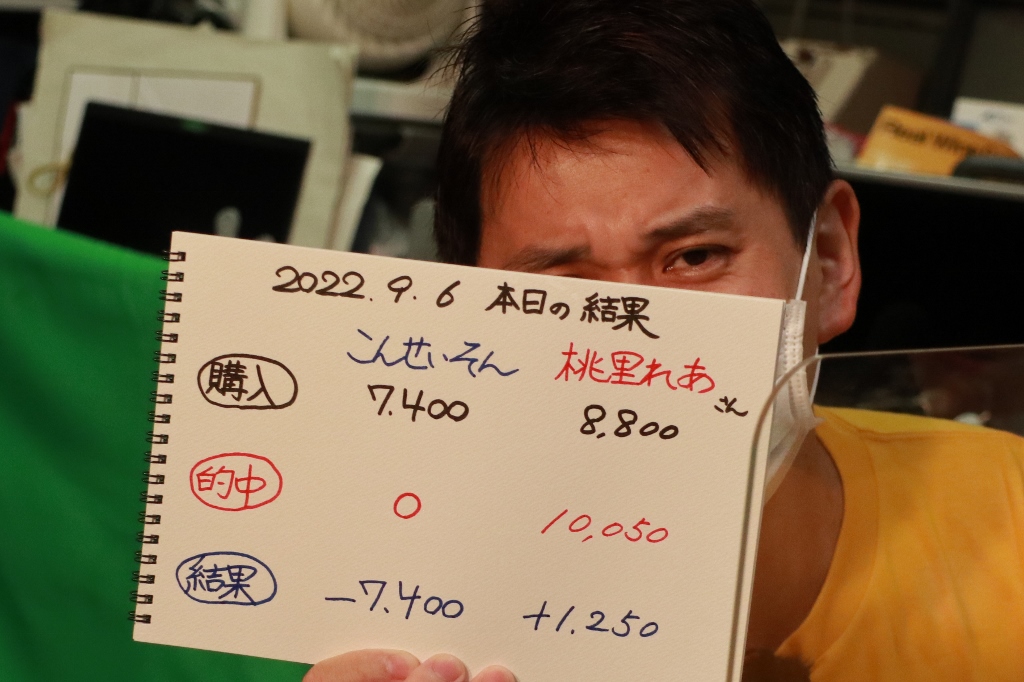 2022.9.6 本日の結果
こんせいそん 桃里れあさん
購入 7.400 8,800
的中 0 10,050
結果 -7.400 +1.250